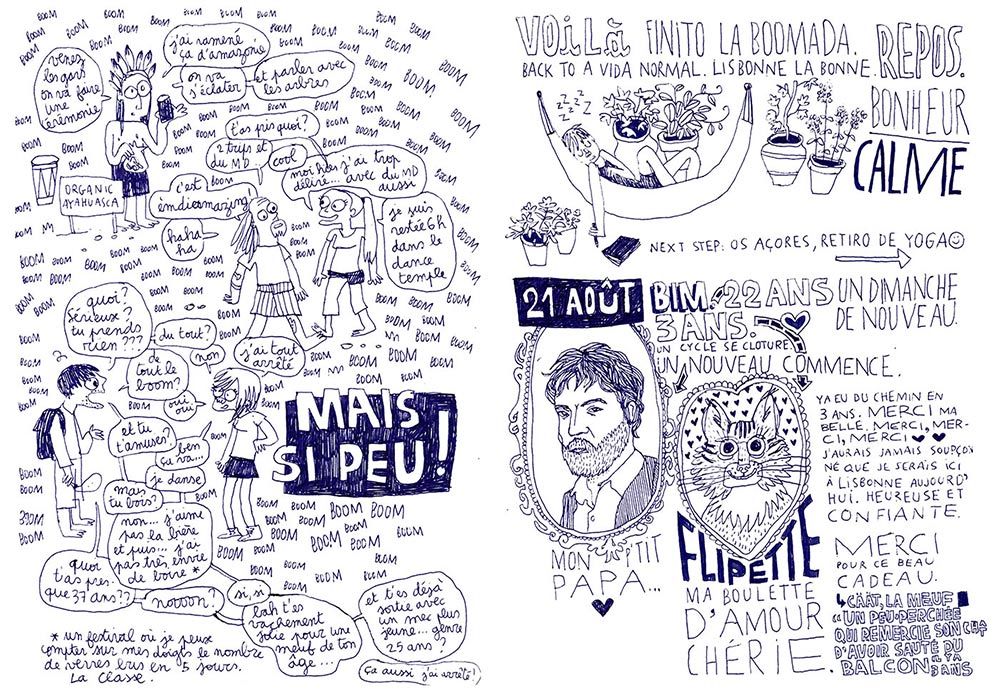 BOOM BOOM BOOM BOOM BOOM BOOM
venez
les gars
on va faire
une
cérémonie
j'ai ramené
ça d'amazonie
on va
s'éclater
et parler avec
les arbres
ORGANIC
AYAHUASCA
t'as pris quoi?
2 trips et
du MD
cool
moi hier j'ai trop
déliré... avec du MD
aussi
c'est
èmdiesmazing
haha
ha
je suis
restée 6h
dans le
dance
temple
quoi?
Sérieux?
tu prends
rien???
du tout?
non
j'ai tout
arrêté
de
tout le
boom?
oui
oui
et tu
t'amuses?
ben
ça va...
je danse
mais
tu bois?
non... j'aime
pas la bière
et puis... j'ai
pas très envie
de boire *
MAIS
SI PEU!
quoi
t'as pres-
que 37 ans??
nooooon?
si, si
bah t'es
vachement
jolie pour une
meuf de ton
âge...
et t'es déjà
sortie avec
un mec plus
jeune... genre
25 ans?
ça aussi j'ai arrêté!
* un festival où je peux
compter sur mes doigts le nombre
de verres bus en 5 jours.
La classe.
VOILÀ FINITO LA BOOMADA.
BACK TO A VIDA NORMAL. LISBONNE LA BONNE. REPOS.
BONHEUR
CALME
ZZZZZ
NEXT STEP: OS AÇORES, RETIRO DE YOGA
21 AOÛT. BIM. 22 ANS UN DIMANCHE
3 ANS. DE NOUVEAU.
UN CYCLE SE CLOTURE,
UN NOUVEAU COMMENCE.
YA EU DU CHEMIN EN
3 ANS. MERCI MA
BELLE. MERCI, MER-
CI, MERCI
J'AURAIS JAMAIS SOUPÇON
NÉ QUE JE SERAIS ICI
À LISBONNE AUJOURD'
HUI. HEUREUSE ET
CONFIANTE.
MON P'TIT
PAPA...
FLIPETTE
MA BOULETTE
D'AMOUR
CHÉRIE
MERCI
POUR CE BEAU
CADEAU.
CÀÀT, LA MEUF
"UN PEU PERCHÉE
QUI REMERCIE SON CHAT
D'AVOIR SAUTÉ DU
BALCON IL YA
3 ANS